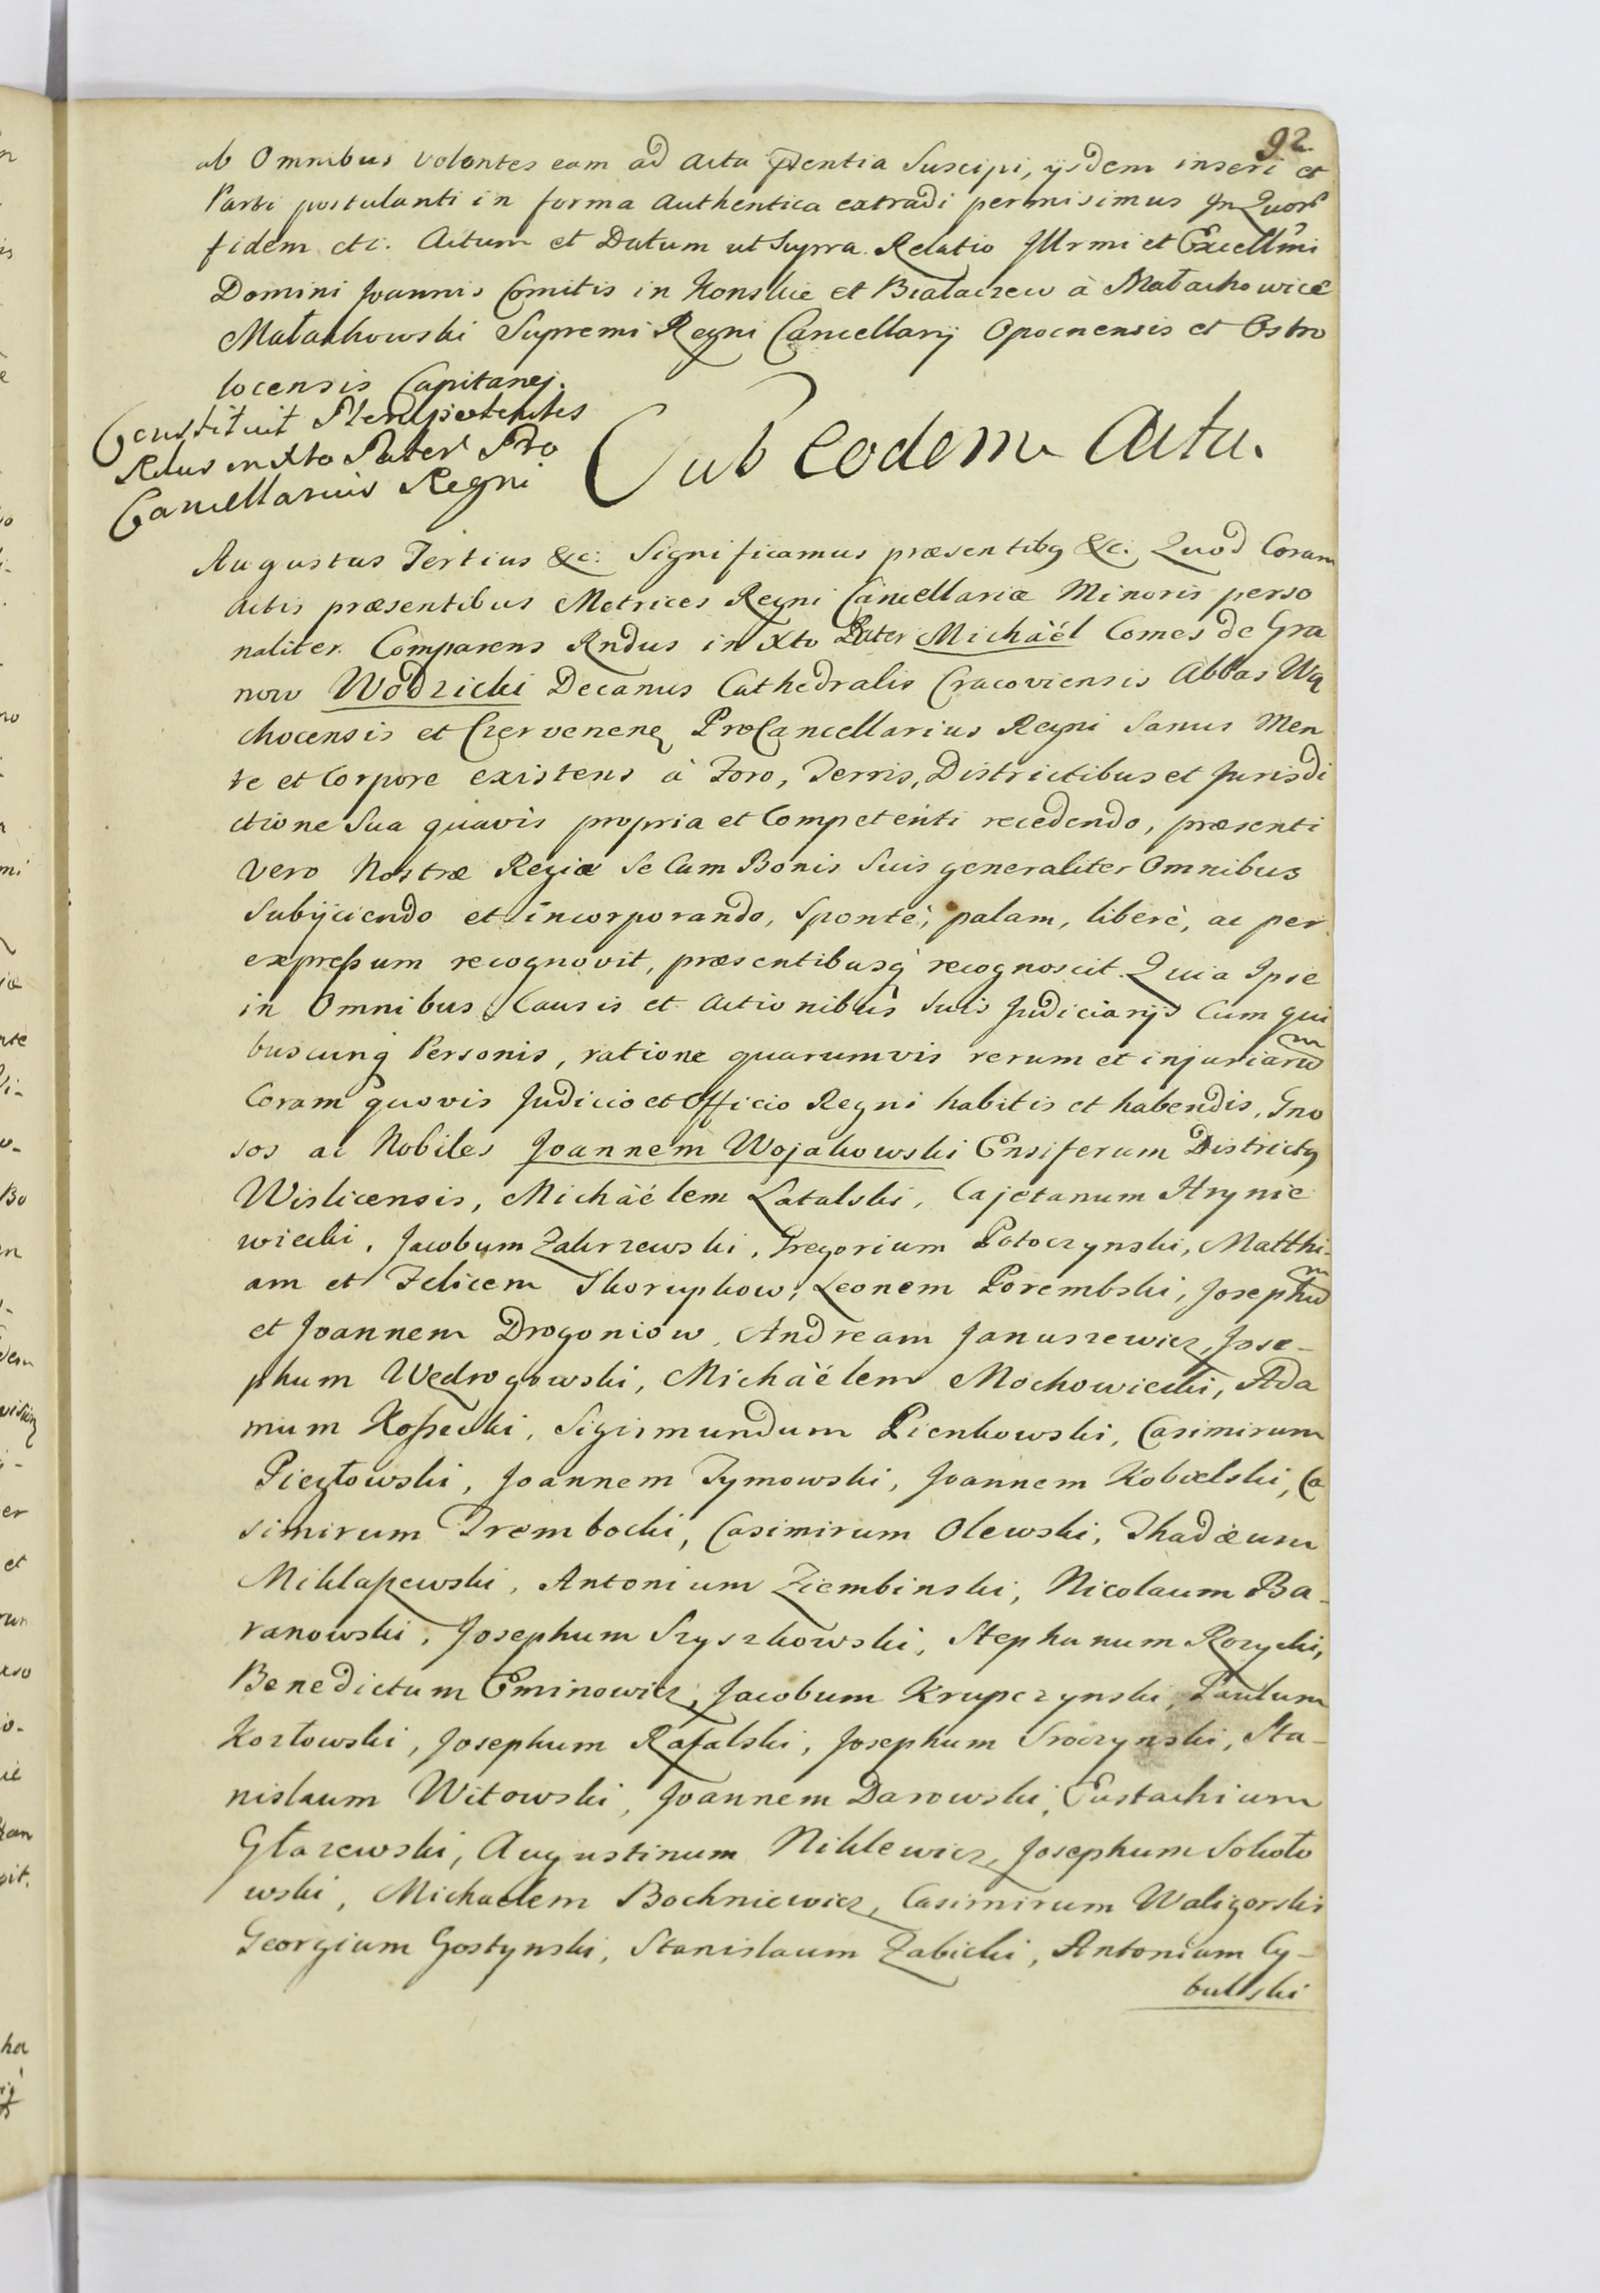 92.
ab Omnibus volentes eam ad Acta pdentia Suscipi, ijsdem inseri et
Parti postulanti in forma Authentica extradi permisimus In Quor
fidem etc. Actum et Datum ut Supra. Relatio Jllrmi et Excellmi
Domini Joannis Comitis in Konskie et Białaczew à Małachowice
Małachowski Supremi Regni Cancellarij Opocnensis et Ostro
locensis Capitanej.
Constituit Plenipotentes
Rdus in Xto Pater Pro
Cancellarius Regni
Sub Eodem Actu.
Augustus Tertius &c: Significamus præsentibq &c. Quod Coram
Actis præsentibus Metrices Regni Cancellariæ Minoris perso
naliter Comparens Rndus in Xto Pater Michäél Comes de Gra
now Wodzicki Decanus Cathedralis Cracoviensis Abbas Wą
chocensis et Czervenen ProCancellarius Regni Sanus Men
te et Corpore existens à Foro, Terris, Districtibus et Jurisdi
ctione Sua quavis propria et Competenti recedendo, præsenti
vero Nostræ Regiæ Se Cum Bonis Suis generaliter Omnibus
Subijciendo et incorporando, Spontè, palam, liberè, ac per
expressum recognovit, præsentibusq recognoscit. Quia Ipse
in Omnibus Causis et Actionibus Suis Judiciarijs Cum qui
buscunq Personis, ratione quarumvis rerum et injuriarum
Coram quovis Judicio et Officio Regni habitis et habendis, Gno
sos ac Nobiles Joannem Wojakowski Ensiferum Districtq
Wislicensis, Michäélem Latalski, Cajetanum Hrynie
wiecki, Jacobum Zakrzewski, Gregorium Potoczynski, Matthi-
am et Felicem Skorupkow, Leonem Porembski, Josephum
et Joannem Drogoniow, Andream Januszewicz, Jose-
phum Wedrogowski, Michäélem Mochowiecki, Ada
mum Kossecki, Sigismundum Pienkowski, Casimirum
Piegłowski, Joannem Tymowski, Joannem Kobielski, Ca
simirum Trembocki, Casimirum Olewski, Thadæum
Miklaszewski, Antonium Ziembinski, Nicolaum Ba-
ranowski, Josephum Szyszkowski, Stephanum Rozycki,
Benedictum Eminowicz, Jacobum Krupczynski, Paulum
Kozłowski, Josephum Rafalski, Josephum Sroczynski, Sta-
nislaum Witowski, Joannem Darowski, Eustachium
Głazewski, Augustinum Niklewicz, Josephum Sokoło
wski, Michaelem Bochniewicz, Casimirum Waligorski
Georgium Gostynski, Stanislaum Zabicki, Antonium Cy-
bulski